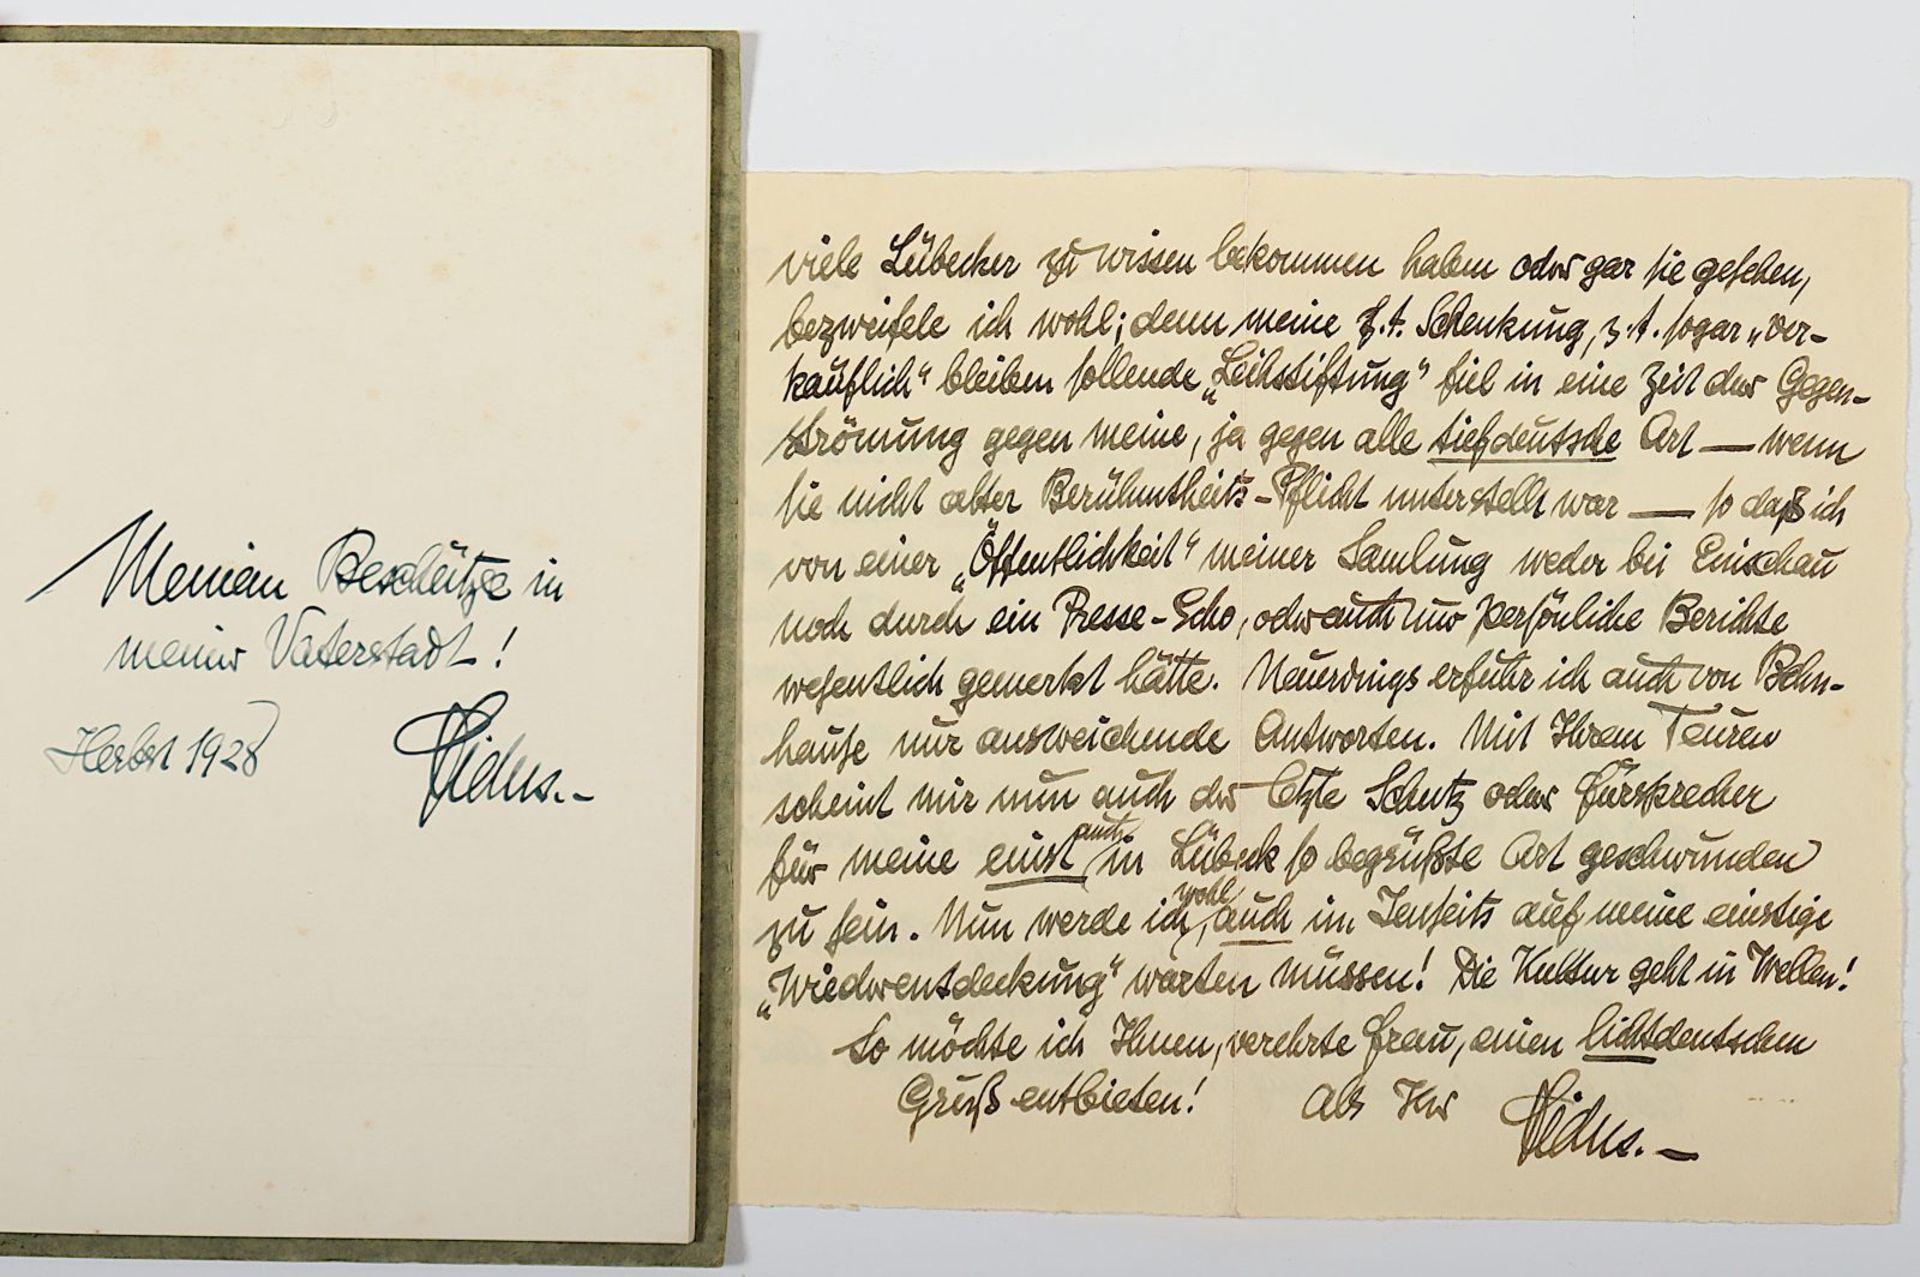 Meinem Beschützer in
meiner Vaterstadt!
Herbst 1928 Fidus.-
viele Lübecker zu wissen bekommen haben oder gar sie gesehen,
bezweifele ich wohl; denn meine z.t. Schenkung, z.t. sogar „ver-
käuflich“ bleiben sollende „Leihstiftung“ fiel in eine Zeit der Gegen-
strömung gegen meine, ja gegen alle tiefdeutsche Art — wenn
sie nicht alter Berühmtheits-Pflicht unterstellt war — so daß ich
von einer „Öffentlichkeit“ meiner Samlung weder bei Einschau
noch durch ein Presse-Echo, oder auch nur persönliche Berichte
wesentlich gemerkt hätte. Neuerdings erfuhr ich auch von Behn-
hause nur ausweichende Antworten. Mit Ihrem Teuren
scheint mir nun auch der letzte Schutz oder Fürsprecher
für meine einst auch in Lübeck so begrüßte Art geschwunden
zu sein. Nun werde ich wohl, auch im Jenseits auf meine einstige
„Wiederentdeckung“ warten müssen! Die Kultur geht in Wellen!
So möchte ich Ihnen, verehrte Frau, einen lichtdeutschen
Gruß entbieten! Als Ihr Fidus.—